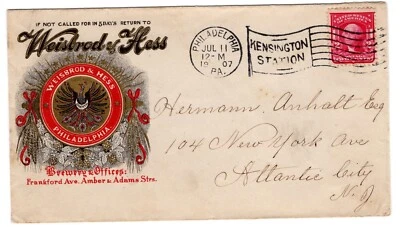 IF NOT CALLED FOR IN 5 DAYS RETURN TO
Weisbrod & Hess
WEISBROD & HESS
PHILADELPHIA
Brewery & Offices:
Frankford Ave. Amber & Adams Strs.
PHILADELPHIA
JUL 11
12-M
1907
PA.
KENSINGTON
STATION
Hermann Anhalt Esq
104 New York Ave
Atlantic City
N.J.